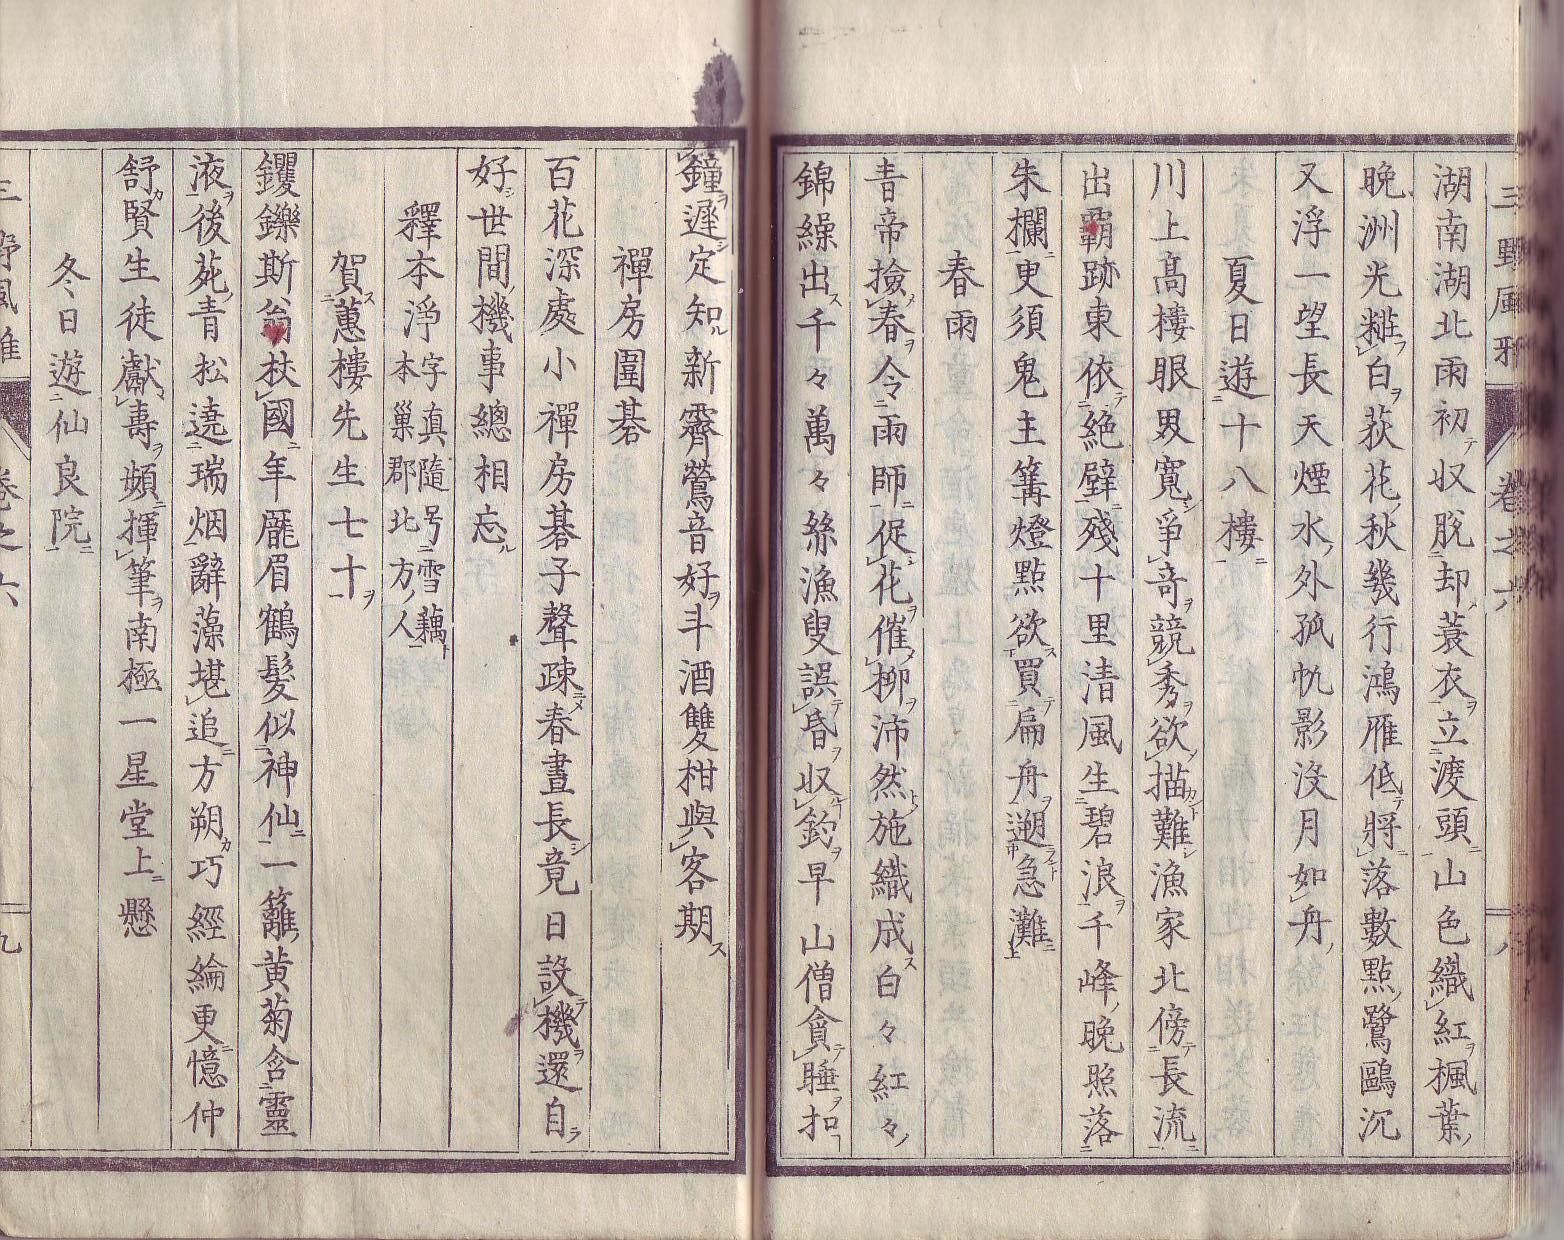 三野風雅 卷之六 八
湖南湖北雨初収脫却蓑衣立渡頭山色織紅楓葉
晚洲光糚白荻花秋幾行鴻雁低將落數點鷺鷗沉
又浮一望長天煙水外孤帆影沒月如舟
夏日遊十八樓
川上高樓眼界寬爭奇競秀欲描難漁家北傍長流
出覇跡東依絕壁殘十里清風生碧浪千峰晚照落
朱欄吏須鬼主篝燈點欲買扁舟遡急灘
春雨
青帝撿春令雨師促花催柳沛然施織成白々紅々
錦繰出千々萬々絲漁叟誤昏収釣早山僧貪睡扣
鐘遲定知新霽鶯音好斗酒雙柑與客期
禪房圍棊
百花深處小禪房棊子聲疎春晝長竟日設機還自
好世間機事總相忘
釋本淨字真隨号雪藕本巢郡北方人
賀蕙樓先生七十
钁鑠斯翁杖國年厖眉鶴髮似神仙一籬黄菊含靈
液後苑青松遶瑞烟辭藻堪追方朔巧經綸更憶仲
舒賢生徒獻壽頻揮筆南極一星堂上懸
冬日遊仙良院
三野風雅 卷之六 九